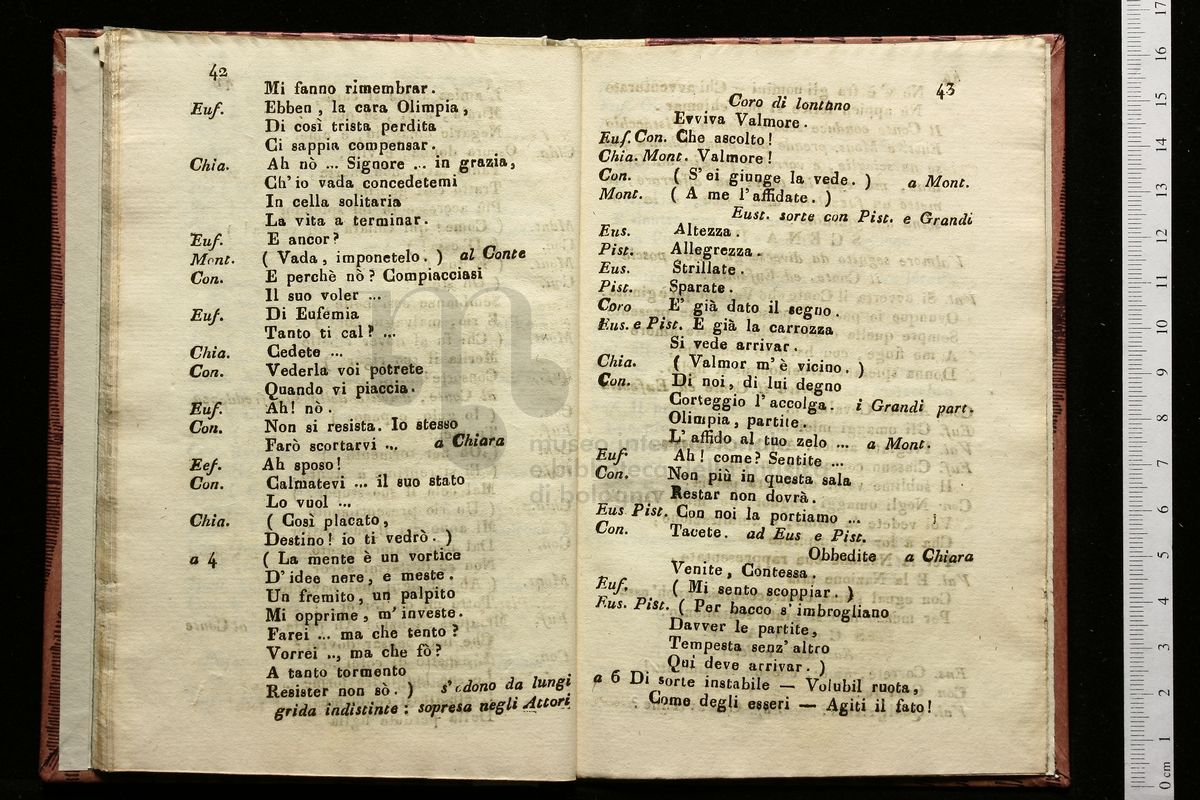 42
Mi fanno rimembrar.
Euf. Ebben, la cara Olimpia,
Di così trista perdita
Ci sappia compensar.
Chia. Ah nò ... Signore ... in grazia,
Ch'io vada concedetemi
In cella solitaria
La vita a terminar.
Euf. E ancor?
Mont. ( Vada, imponetelo. ) al Conte
Con. E perchè nò? Compiacciasi
Il suo voler ...
Euf. Di Eufemia
Tanto ti cal? ...
Chia. Cedete ...
Con. Vederla voi potrete
Quando vi piaccia.
Euf. Ah! nò.
Con. Non si resista. Io stesso
Farò scortarvi ... a Chiara
Eef. Ah sposo!
Con. Calmatevi ... il suo stato
Lo vuol ...
Chia. ( Così placato,
Destino! io ti vedrò. )
a 4 ( La mente è un vortice
D'idee nere, e meste.
Un fremito, un palpito
Mi opprime, m'investe.
Farei ... ma che tento?
Vorrei .., ma che fò?
A tanto tormento
Resister non sò. ) s'odono da lungi
grida indistinte : sopresa negli Attori
43
Coro di lontano
Evviva Valmore.
Euf. Con. Che ascolto!
Chia. Mont. Valmore!
Con. ( S'ei giunge la vede. ) a Mont.
Mont. ( A me l'affidate. )
Eust. sorte con Pist. e Grandi
Eus. Altezza.
Pist. Allegrezza.
Eus. Strillate.
Pist. Sparate.
Coro E' già dato il segno.
Eus. e Pist. E già la carrozza
Si vede arrivar.
Chia. ( Valmor m'è vicino. )
Con. Di noi, di lui degno
Corteggio l'accolga. i Grandi part.
Olimpia, partite.
L'affido al tuo zelo ... a Mont.
Euf. Ah! come? Sentite ...
Con. Non più in questa sala
Restar non dovrà.
Eus Pist. Con noi la portiamo ... !
Con. Tacete. ad Eus e Pist.
Obbedite a Chiara
Venite, Contessa.
Euf. ( Mi sento scoppiar. )
Eus. Pist. ( Per bacco s'imbrogliano
Davver le partite,
Tempesta senz'altro
Qui deve arrivar. )
a 6 Di sorte instabile — Volubil ruota,
Come degli esseri — Agiti il fato!